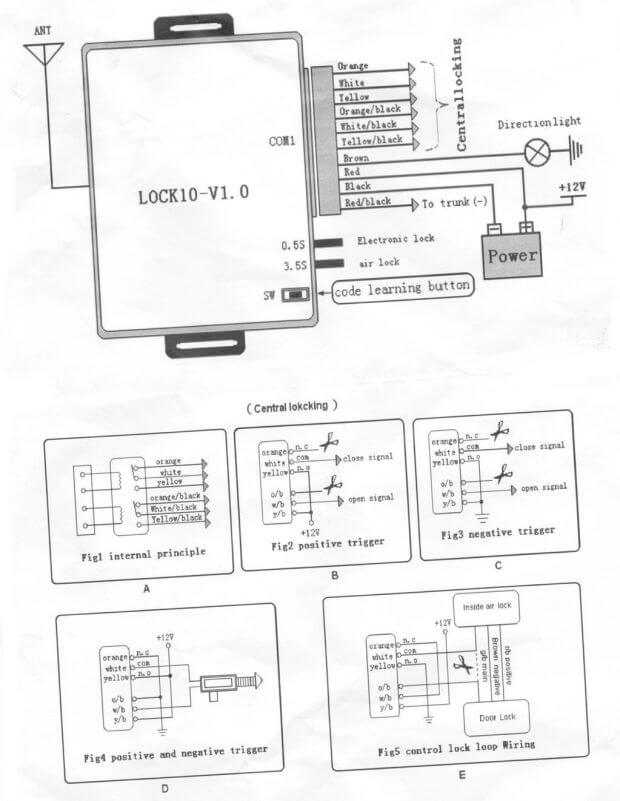 ANT
Orange
White
Yellow
Orange/black
White/black
Yellow/black
Centrallocking
COM1
Brown
Direction light
Red
Black
+12V
LOCK10-V1.0
Red/black
To trunk (-)
0.5S
Electronic lock
Power
3.5S
air lock
SW
code learning button
( Central lokcking )
orange
white
yellow
orange/black
White/black
Yellow/black
Fig1 internal principle
A
orange
n.c
white
com
close signal
yellow
n.o
o/b
w/b
open signal
y/b
+12V
Fig2 positive trigger
B
orange
n.c
white
com
close signal
yellow
n.o
o/b
w/b
open signal
y/b
Fig3 negative trigger
C
+12V
orange
n.c
white
com
yellow
n.o
o/b
w/b
y/b
Fig4 positive and negative trigger
D
Inside air lock
+12V
orange
n.c
white
com
yellow
n.o
main
Brown negative
positive
o/b
w/b
y/b
Door Lock
Fig5 control lock loop Wiring
E